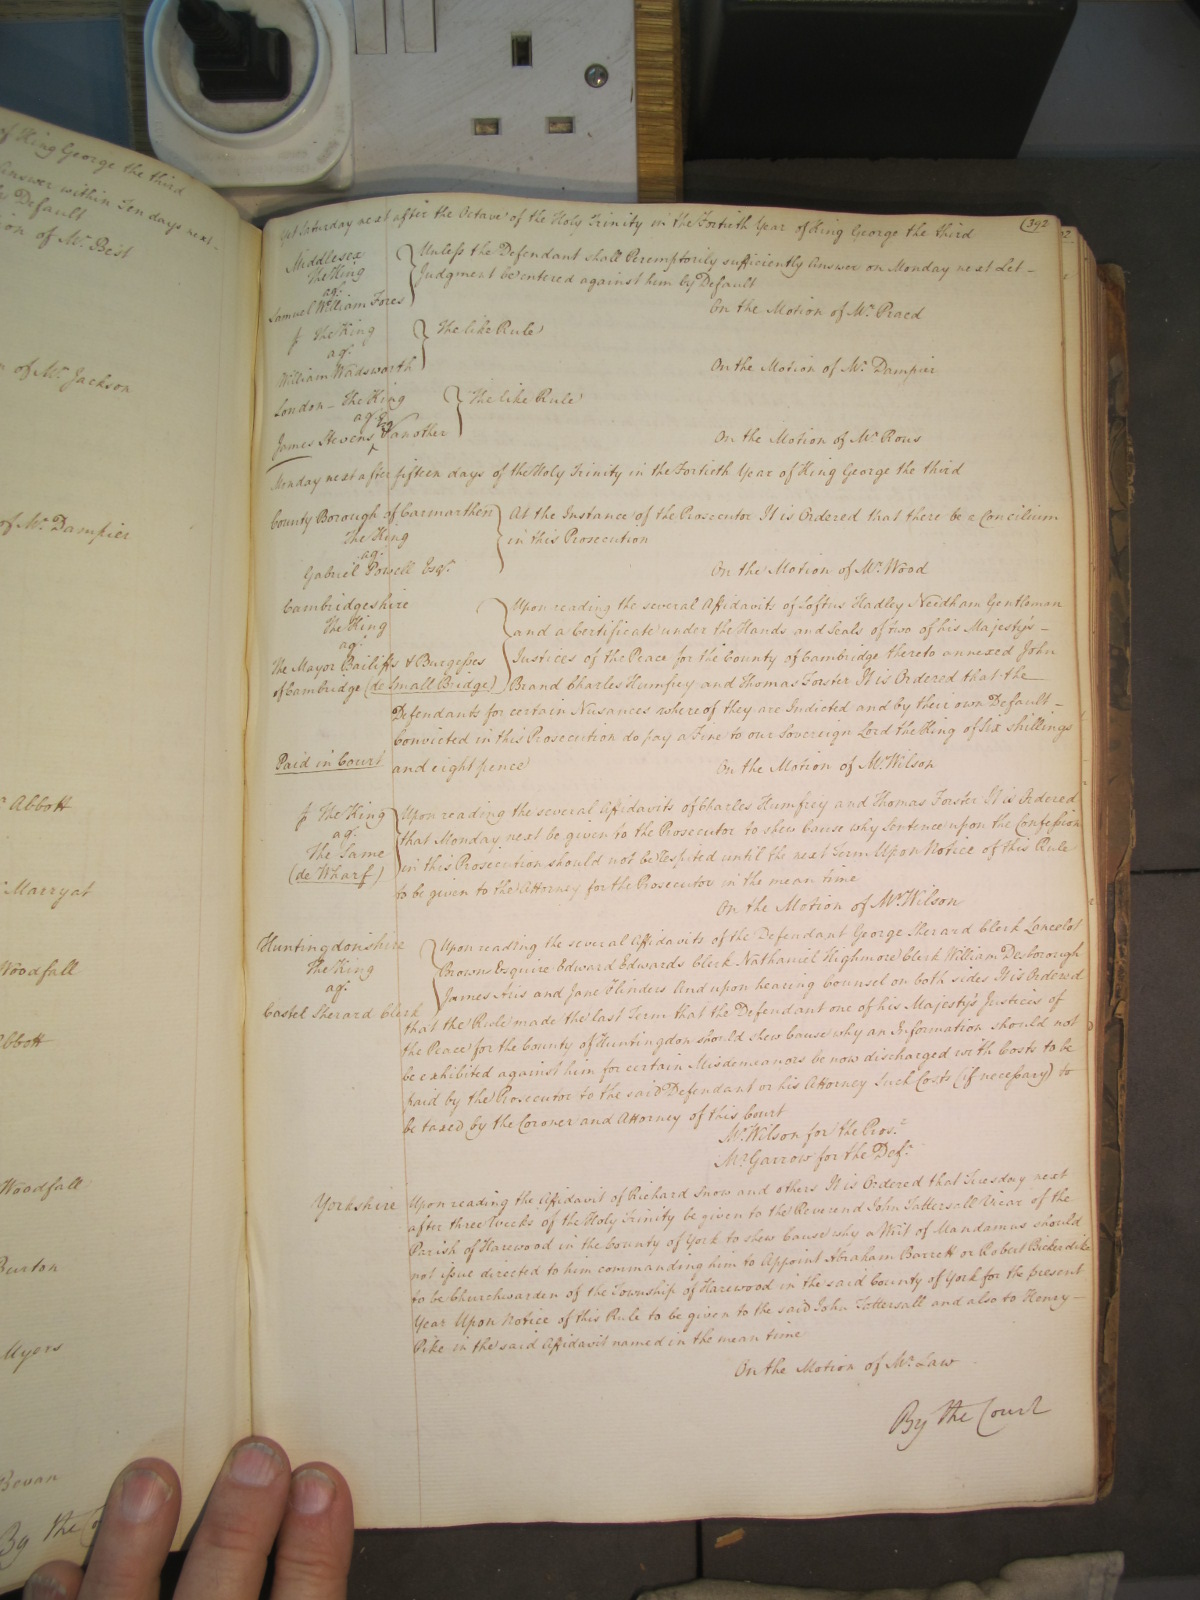 of King George the third
Answer within Ten days next
by Default
on of Mr. Best
of Mr. Jackson
of Mr. Dampier
Abbott
Marryat
Woodfall
Abbott
Woodfall
Burton
Myers
Bevan
By the Co
392
Yet Saturday next after the Octave of the Holy Trinity in the Fortieth Year of King George the third
Middlesex
The King
agt.
Samuel William Fores
Unless the Defendant shall Peremptorily sufficiently Answer on Monday next Let
Judgment be entered against him by Default
On the Motion of Mr. Praed
The King
agt.
William Wadsworth
The like Rule
On the Motion of Mr. Dampier
London - The King
agt.
James Stevens Esq & another
The like Rule
On the Motion of Mr. Rous
Monday next after fifteen days of the Holy Trinity in the Fortieth Year of King George the third
County Borough of Carmarthen
The King
agt.
Gabriel Powell Esqr.
At the Instance of the Prosecutor It is Ordered that there be a Concilium
in this Prosecution
On the Motion of Mr. Wood
Cambridgeshire
The King
agt.
The Mayor Bailiffs & Burgesses
of Cambridge (de Small Bridge)
Upon reading the several Affidavits of Loftus Hadley Needham Gentleman
and a Certificate under the Hands and Seals of two of his Majesty's
Justices of the Peace for the County of Cambridge thereto annexed John
Brand Charles Humfrey and Thomas Forster It is Ordered that the
Defendants for certain Nusances whereof they are Indicted and by their own Default
Convicted in this Prosecution do pay a Fine to our Sovereign Lord the King of six shillings
Paid in Court
and eight pence
On the Motion of Mr. Wilson
The King
agt.
The Same
(de Wharf)
Upon reading the several Affidavits of Charles Humfrey and Thomas Forster It is Ordered
that Monday next be given to the Prosecutor to shew Cause why Sentence upon the Confession
in this Prosecution should not be respited until the next Term Upon Notice of this Rule
to be given to the Attorney for the Prosecutor in the mean time
On the Motion of Mr. Wilson
Huntingdonshire
The King
agt.
Castel Sherard Clerk
Upon reading the several Affidavits of the Defendant George Sherard Clerk Lancelot
Browns Esquire Edward Edwards Clerk Nathaniel Highmore Clerk William Desborough
James Ais and Jane Flinders And upon hearing Counsel on both sides It is Ordered
that the Rule made the last Term that the Defendant one of his Majesty's Justices of
the Peace for the County of Huntingdon should shew Cause why an Information should not
be exhibited against him for certain Misdemeanors be now discharged with Costs to be
paid by the Prosecutor to the said Defendant or his Attorney Such Costs (if necessary) to
be taxed by the Coroner and Attorney of this Court
Mr. Wilson for the Pros.
Mr. Garrow for the Def.
Yorkshire
Upon reading the Affidavit of Richard Snow and others It is Ordered that Tuesday next
after three Weeks of the Holy Trinity be given to the Reverend John Tattersall Vicar of the
Parish of Harewood in the County of York to shew Cause why a Writ of Mandamus should
not issue directed to him commanding him to Appoint Abraham Barrett or Robert Bickerdike
to be Churchwarden of the Township of Harewood in the said County of York for the present
Year Upon Notice of this Rule to be given to the said John Tattersall and also to Henry
Pike in the said Affidavit named in the mean time
On the Motion of Mr. Law
By the Court